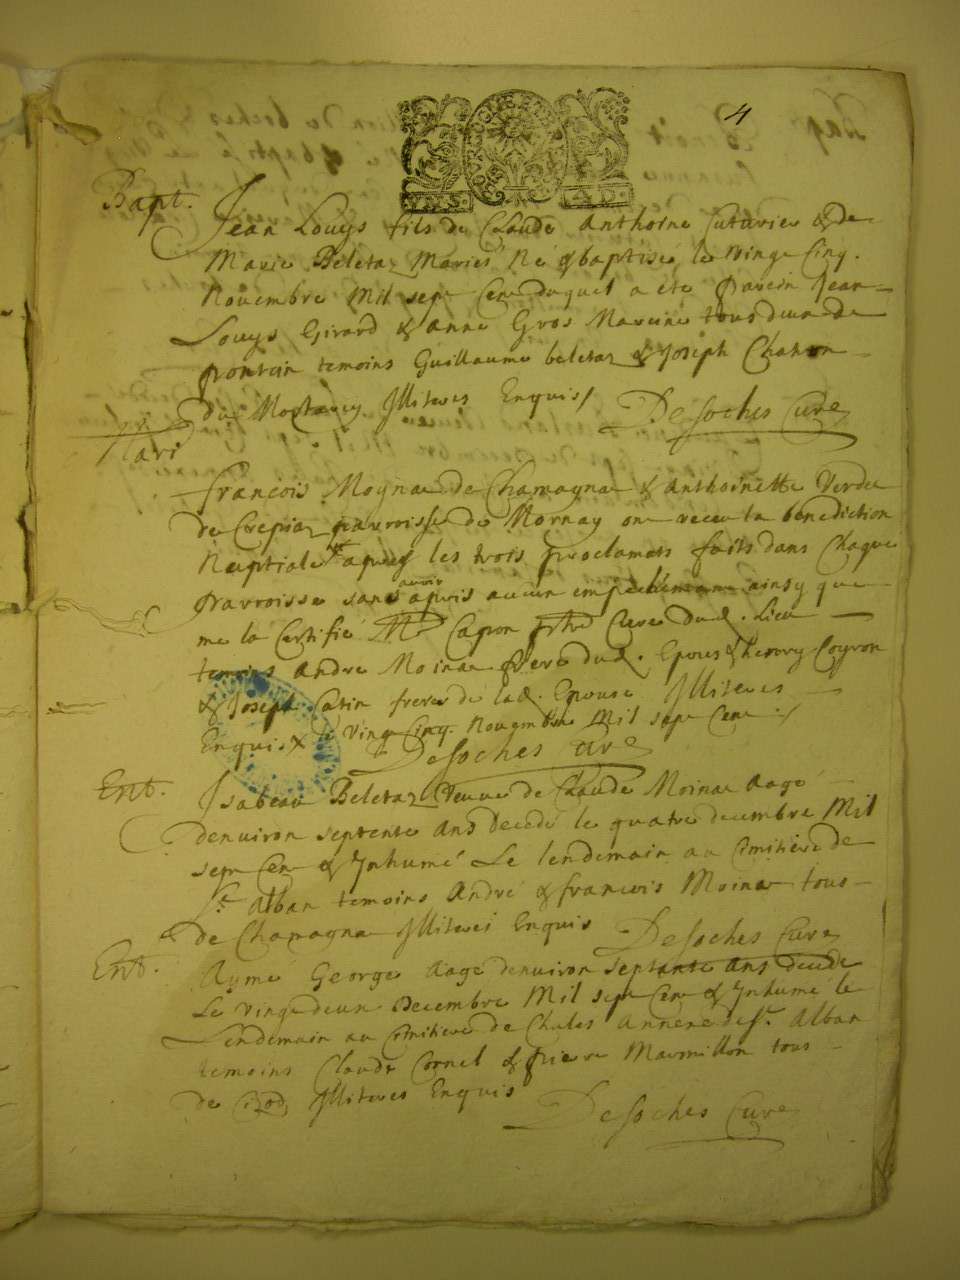 4
Bapt. Jean Louys fils de Claude Anthoine Cuturier & de
Marie Beletaz Mariés Né & baptisé le vingt Cinq.
Novembre Mil sept Cent duquel a eté parein Jean
Louys Girard & anne Gros Mareine tous deux de
poncin temoins Guillaume beletaz & Joseph Chanon
du Mortarey Illiteres Enquis /
Desoches Curé
Mari
francois Moynat de Chamagnat & anthoinette Verdet
de Crepiaz parroisse de Mornay ont receu la benediction
Nuptiale apres les trois proclamats faits dans Chaque
parroisse sans avoir apris aucun empechement ainsy que
me la Certifié Mre Capon prtre Curé dud. Lieu
temoins André Moinat frere dud. Epoux & henry Coyron
& Joseph Catin freres de lad. Epouse Illiteres
Enquis le vingt Cinq. Novembre Mil sept Cent /
Desoches Curé
Ent. Isabeau Beletaz veuve de Claude Moinat Aagé
denuiron septente ans decedé le quatre decembre Mil
sept Cent & Inhumé Le lendemain au Cimitiere de
St. Alban temoins André & francois Moinat tous
de Chamagnat Illiteres Enquis
Desoches Curé
Ent. Aymé George Aagé denuiron septante ans decedé
Le vingt deux Decembre Mil sept Cent & Inhumé le
Lendemain au Cimitiere de Chales Annexe de St. Alban
temoins Claude Cornet & pierre Marmillon tous
de Illiteres Enquis
Desoches Curé